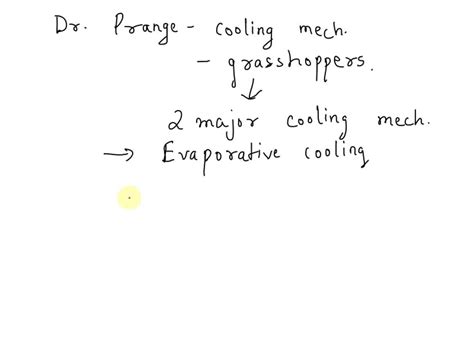 Dr. Prange - cooling mech.
- grasshoppers.
↓
2 major cooling mech.
→ Evaporative cooling